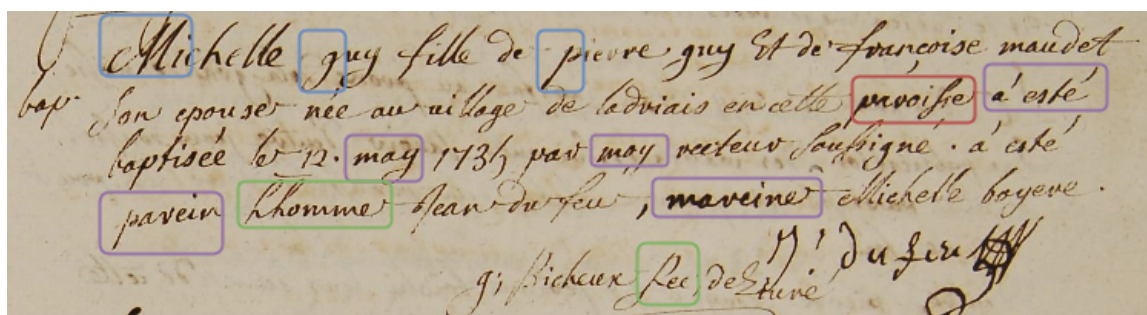 Michelle guy fille de pierre guy Et de françoise maudet
bap. Son epouse née au village de ladriais en cette paroisse à esté
baptisée le 12. may par moy recteur soussigné. à esté
parein l'homme Jean du feu, mareine Michelle boyere.
du feu
g; Richeux Rec, de